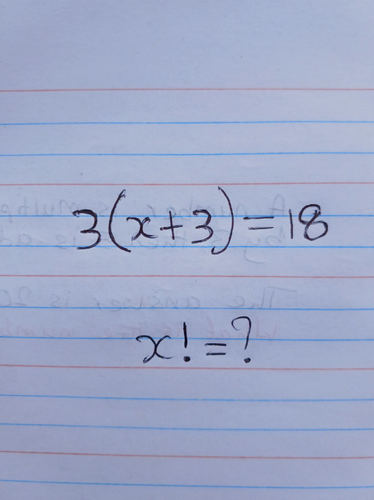 3(x+3)=18
x!=?